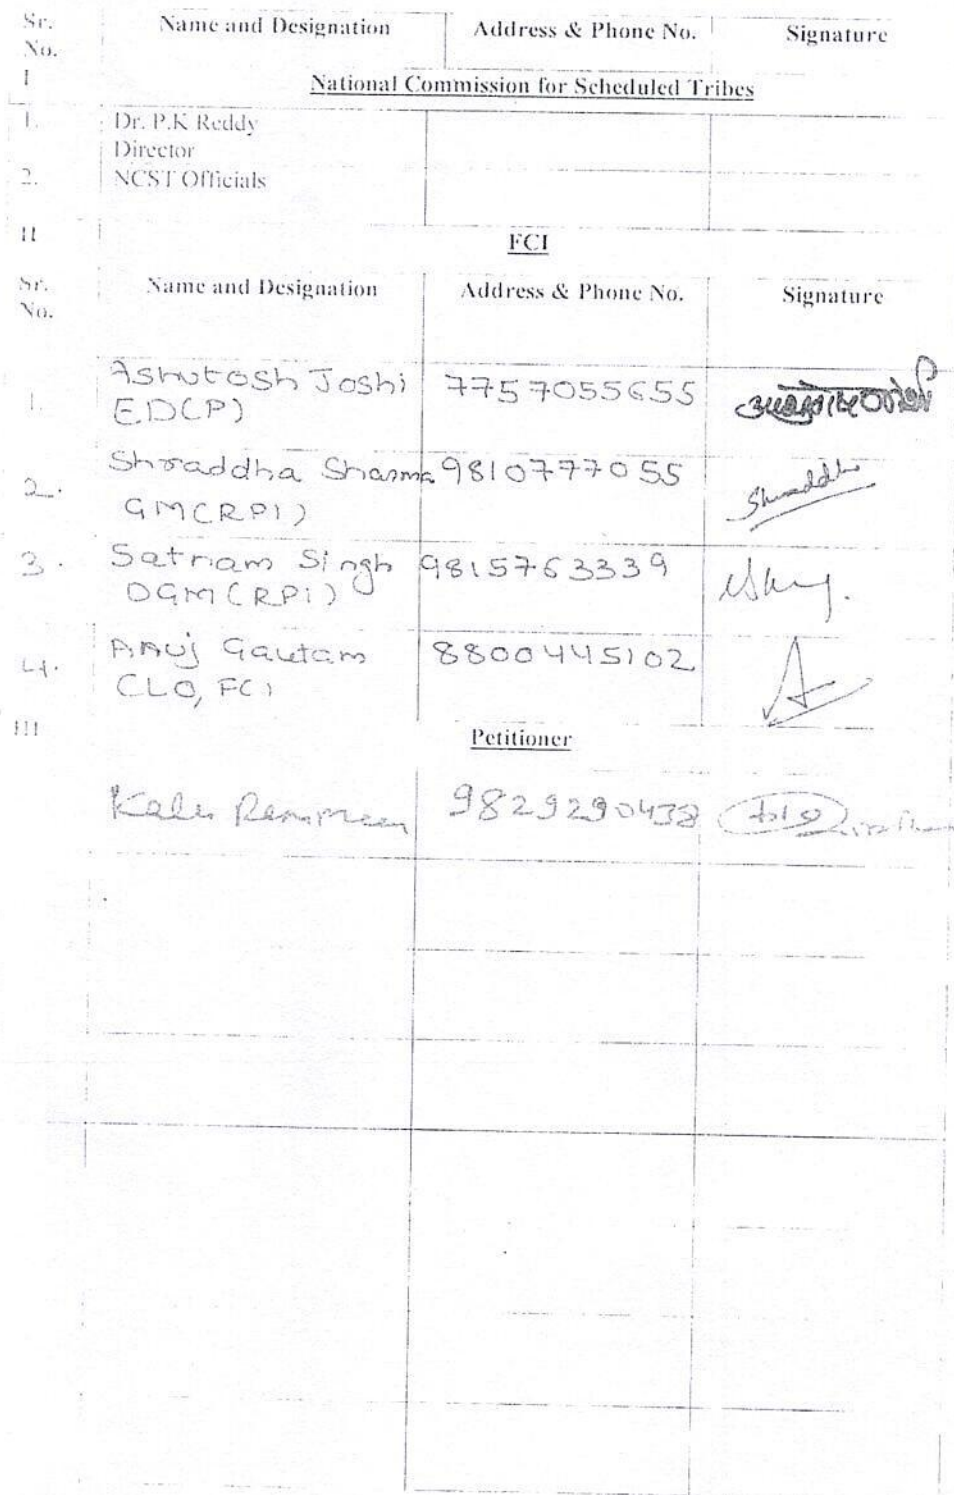 Sr. Name and Designation Address & Phone No. Signature
No.
I National Commission for Scheduled Tribes
1. Dr. P.K Reddy
Director
2. NCST Officials
II FCI
Sr. Name and Designation Address & Phone No. Signature
No.
1. Ashutosh Joshi 7757055655
ED(P)
2. Shraddha Sharma 9810777055 Shraddha
GM(RPI)
3. Satnam Singh 9815763339
DGM(RPI)
4. Anuj Gautam 8800445102
CLO, FCI
III Petitioner
Kalu 9829290438